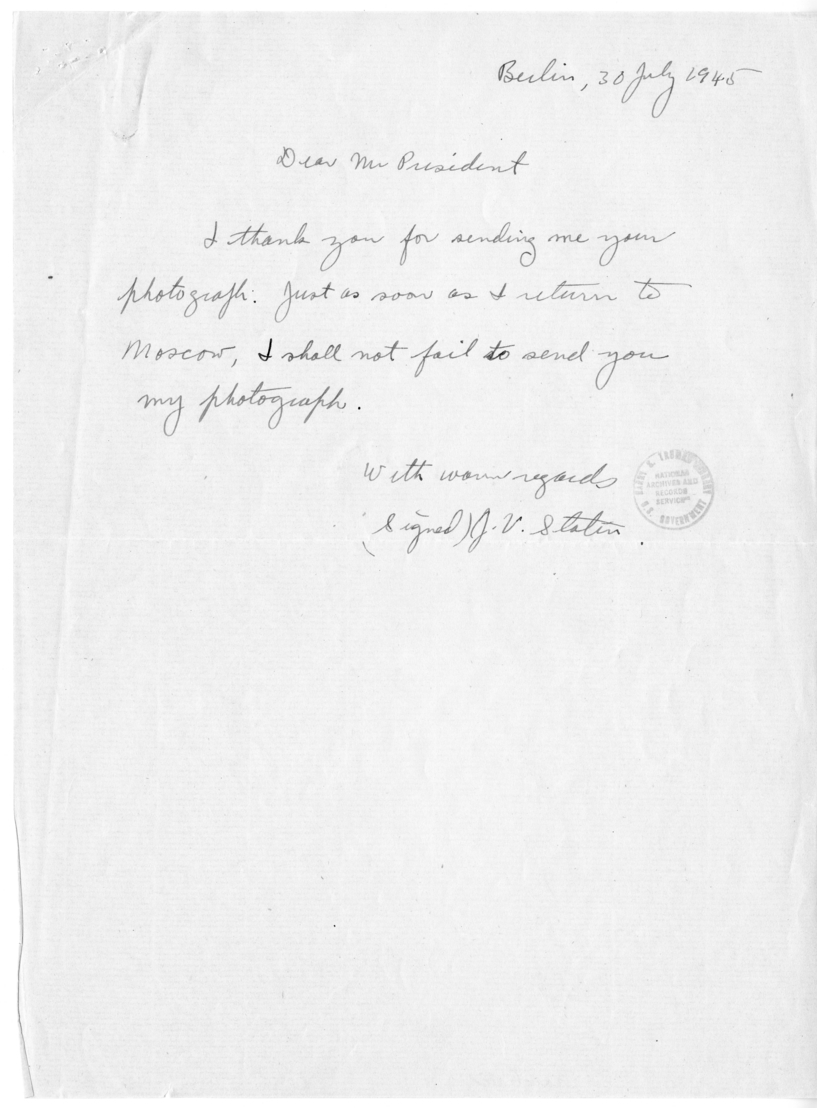 Berlin, 30 July 1945
Dear Mr President
I thank you for sending me your
photograph. Just as soon as I return to
Moscow, I shall not fail to send you
my photograph.
With warm regards
(Signed) J. V. Stalin.
HARRY S. TRUMAN LIBRARY
NATIONAL
ARCHIVES AND
RECORDS
SERVICE
U.S. GOVERNMENT